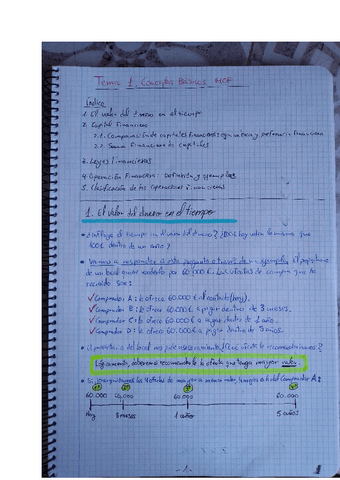 Tema 1. Conceptos Básicos MOF
Índice
1. El valor del dinero en el tiempo
2. Capital Financiero
2.1. Comparación de capitales financieros: equivalencia y preferencia financiera
2.2. Suma Financiera de capitales
3. Leyes Financieras
4. Operación Financiera: Definición y ejemplos
5. Clasificación de las Operaciones Financieras
1. El valor del dinero en el tiempo
• ¿Influye el tiempo en el valor del dinero? ¿100€ hoy valen lo mismo que
100€ dentro de un año?
• Vamos a responder a esta pregunta a través de un ejemplo: el propietario
de un local quiere venderlo por 60.000€. Las ofertas de compra que ha
recibido son:
✓ Comprador A: le ofrece 60.000€ al contado (hoy).
✓ Comprador B: le ofrece 60.000€ a pagar dentro de 3 meses.
✓ Comprador C: le ofrece 60.000€ a pagar dentro de 1 año.
✓ Comprador D: le ofrece 60.000€ a pagar dentro de 5 años.
• El propietario del local nos pide asesoramiento. ¿Qué oferta le recomendaríamos?
Lógicamente, deberemos recomendarle la oferta que tenga mayor valor.
• Si las ofertas de mayor a menor valor, la mejor es la del Comprador A:
60.000 60.000 60.000 60.000
Hoy 3 meses 1 año 5 años
- 1 -